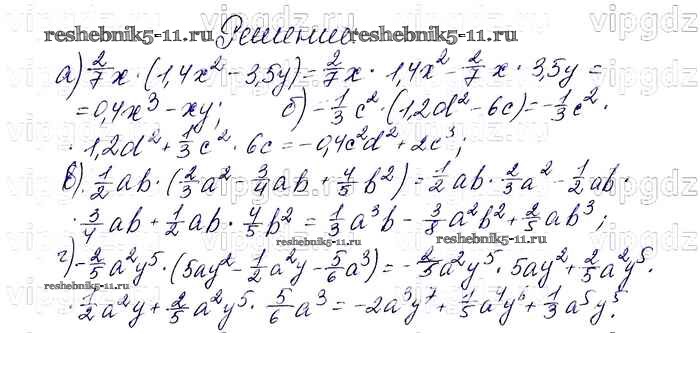 Решение
reshebnik5-11.ru reshebnik5-11.ru
а) 2/7 x · (1,4x² - 3,5y) = 2/7 x · 1,4x² - 2/7 x · 3,5y =
= 0,4x³ - xy; б) -1/3 c² · (1,2d² - 6c) = -1/3 c² ·
· 1,2d² + 1/3 c² · 6c = -0,4c²d² + 2c³;
в) 1/2 ab · (2/3 a² - 3/4 ab + 4/5 b²) = 1/2 ab · 2/3 a² - 1/2 ab ·
· 3/4 ab + 1/2 ab · 4/5 b² = 1/3 a³b - 3/8 a²b² + 2/5 ab³;
reshebnik5-11.ru reshebnik5-11.ru
г) -2/5 a²y⁵ · (5ay² - 1/2 a²y - 5/6 a³) = -2/5 a²y⁵ · 5ay² + 2/5 a²y⁵ ·
· 1/2 a²y + 2/5 a²y⁵ · 5/6 a³ = -2a³y⁷ + 1/5 a⁴y⁶ + 1/3 a⁵y⁵.
vipgdz